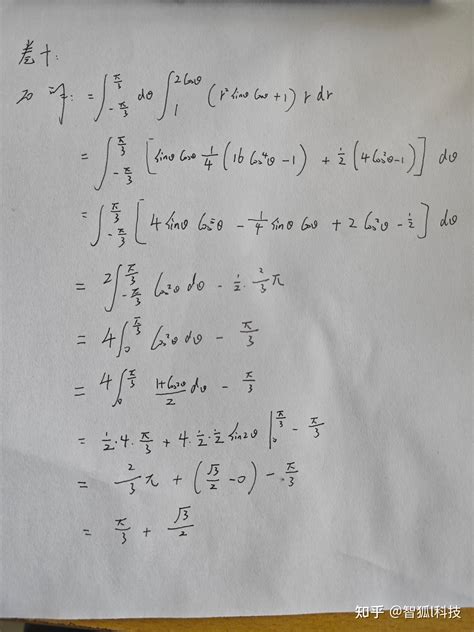 卷十:
20
= ∫_{-π/3}^{π/3} dθ ∫_1^{2cosθ} (r² sinθ cosθ + 1) r dr
= ∫_{-π/3}^{π/3} [sinθ cosθ 1/4 (16 cos⁴θ - 1) + 1/2 (4cos²θ-1)] dθ
= ∫_{-π/3}^{π/3} [4 sinθ cos⁵θ - 1/4 sinθ cosθ + 2 cos²θ - 1/2] dθ
= 2∫_{-π/3}^{π/3} cos²θ dθ - 1/2 · 2/3 π
= 4∫_0^{π/3} cos²θ dθ - π/3
= 4∫_0^{π/3} (1+cos2θ)/2 dθ - π/3
= 1/2 · 4 · π/3 + 4 · 1/2 · 1/2 sin2θ |_0^{π/3} - π/3
= 2/3 π + (√3/2 - 0) - π/3
= π/3 + √3/2
知乎 @智狐l科技